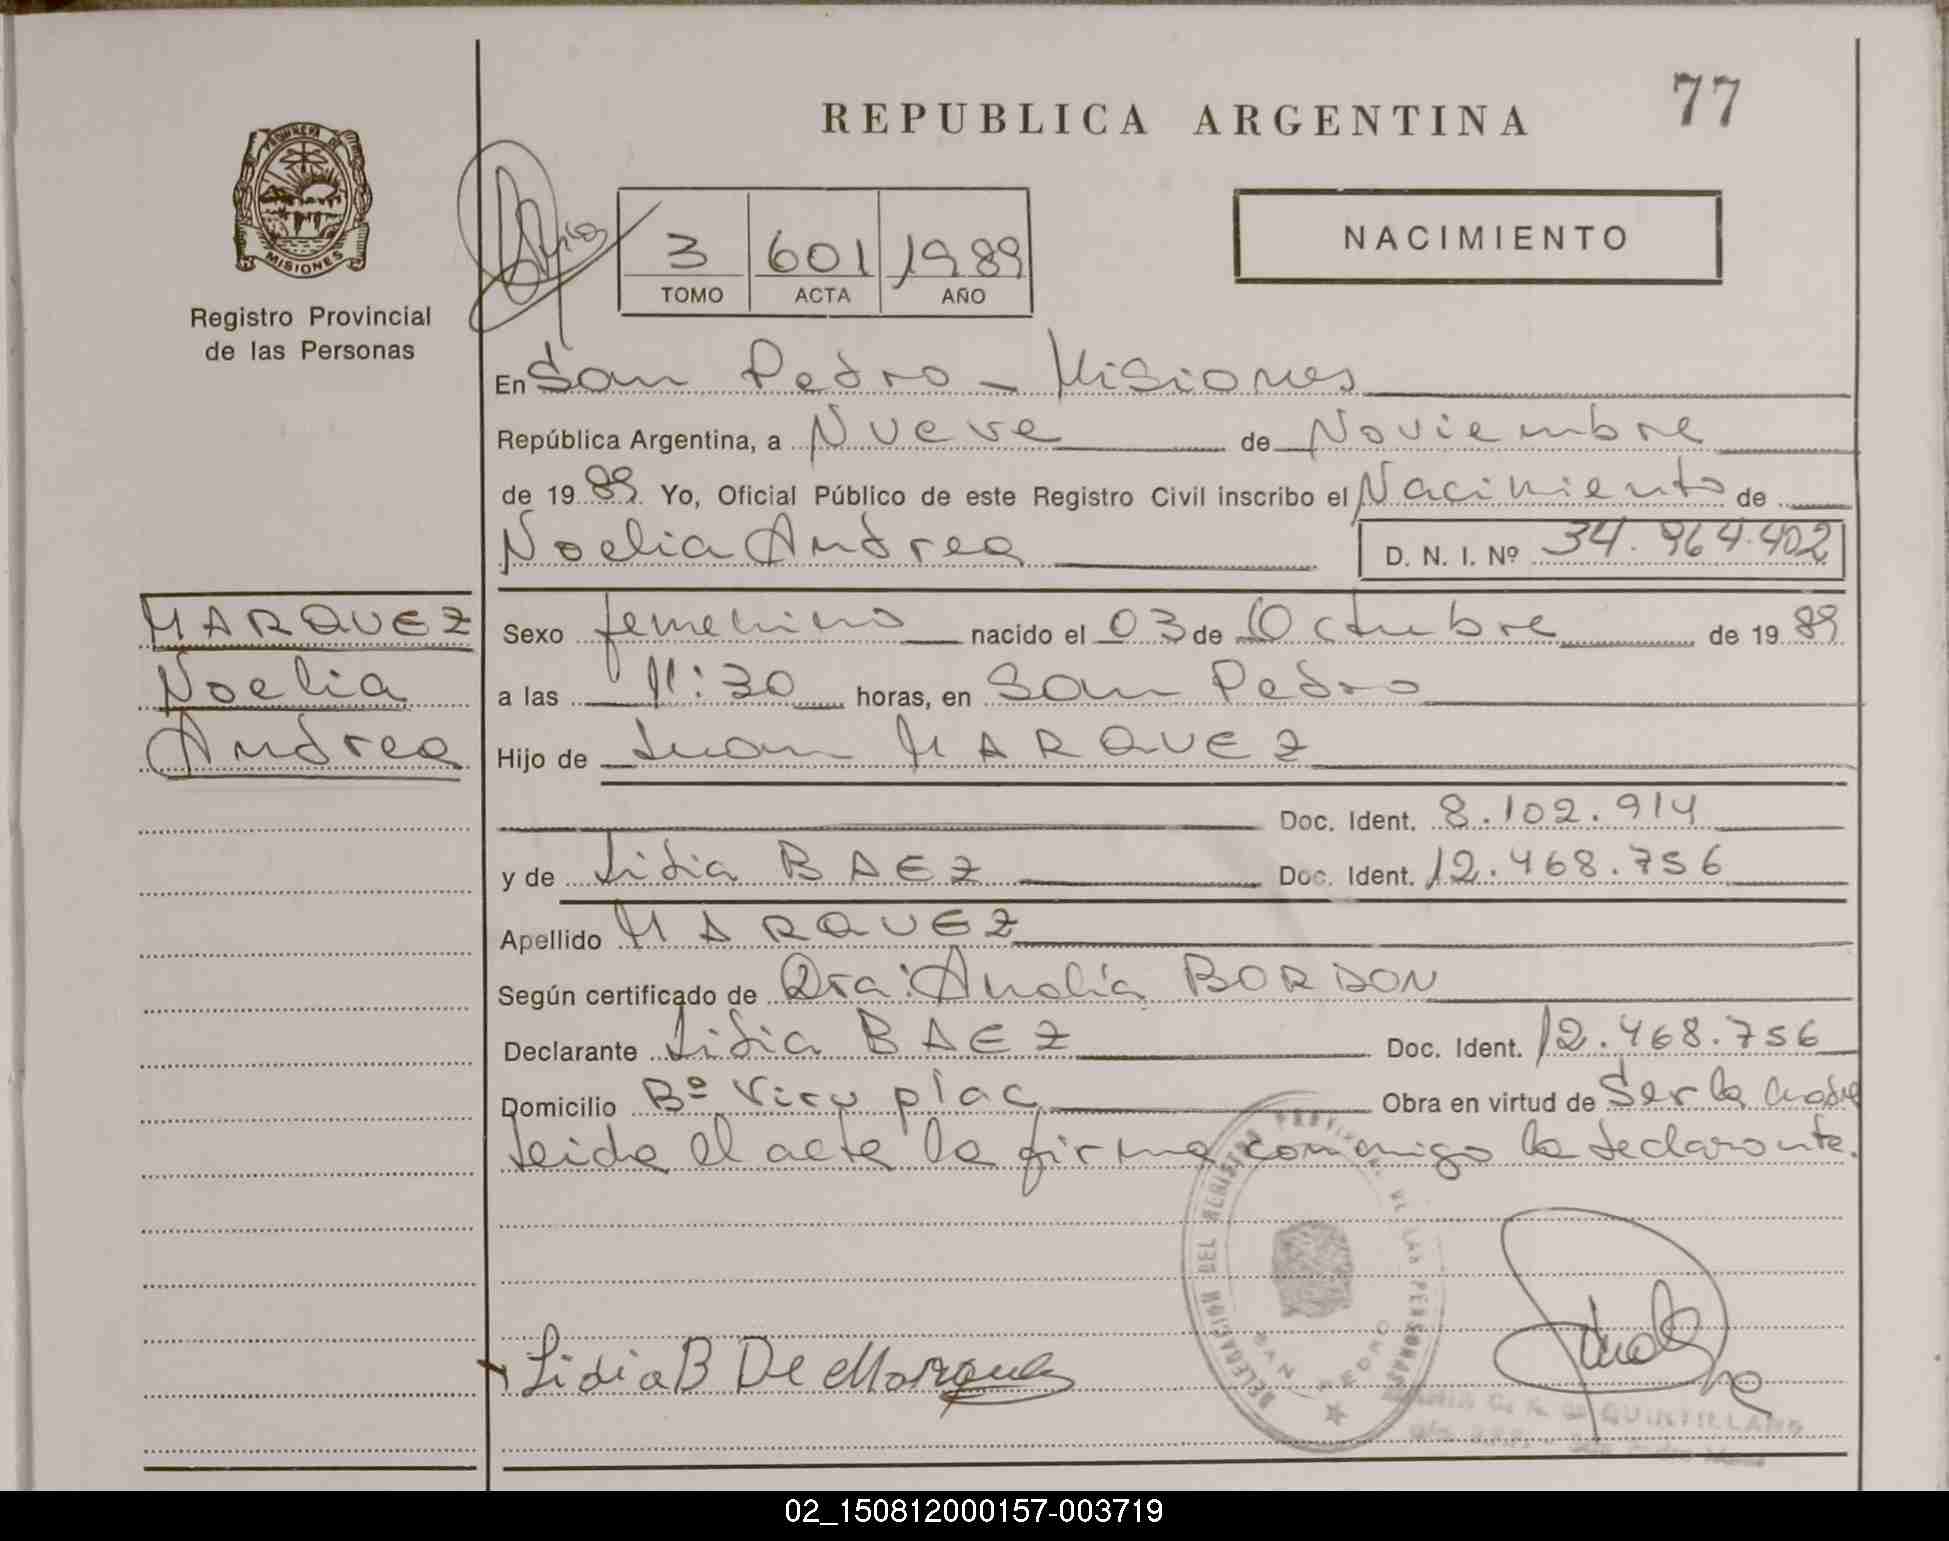 REPUBLICA ARGENTINA
77
PROVINCIA DE
MISIONES
Registro Provincial
de las Personas
3 601 1989
TOMO ACTA AÑO
NACIMIENTO
En San Pedro - Misiones
República Argentina, a Nueve de Noviembre
de 1989 Yo, Oficial Público de este Registro Civil inscribo el Nacimiento de
Noelia Andrea D. N. I. Nº 34.964.402
MARQUEZ
Noelia
Andrea
Sexo femenino nacido el 03 de Octubre de 1989
a las 11:30 horas, en San Pedro
Hijo de Juan MARQUEZ
Doc. Ident. 8.102.914
y de Lidia BAEZ Doc. Ident. 12.468.756
Apellido MARQUEZ
Según certificado de Dra: Analía BORDON
Declarante Lidia BAEZ Doc. Ident. 12.468.756
Domicilio Bº Viru plac Obra en virtud de Ser la madre
Leida el acta la firma conmigo la declarante.
DELEGACION DEL REGISTRO PROVINCIAL DE LAS PERSONAS
SAN PEDRO
Lidia B De Marquez
QUINTILLANO
02_150812000157-003719